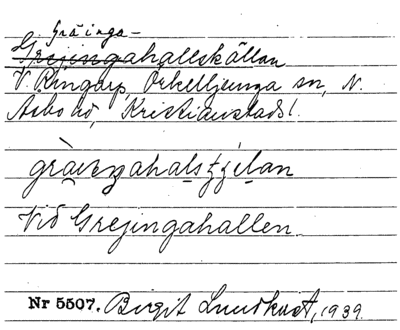 Gräinga-
Grejingahallskällan
V. Ringarp, Örkelljunga sn, N.
Åsbo hd, Kristianstads l.
Vid Grejingahallen.
Nr 5507. Birgit Lundkvist, 1939.